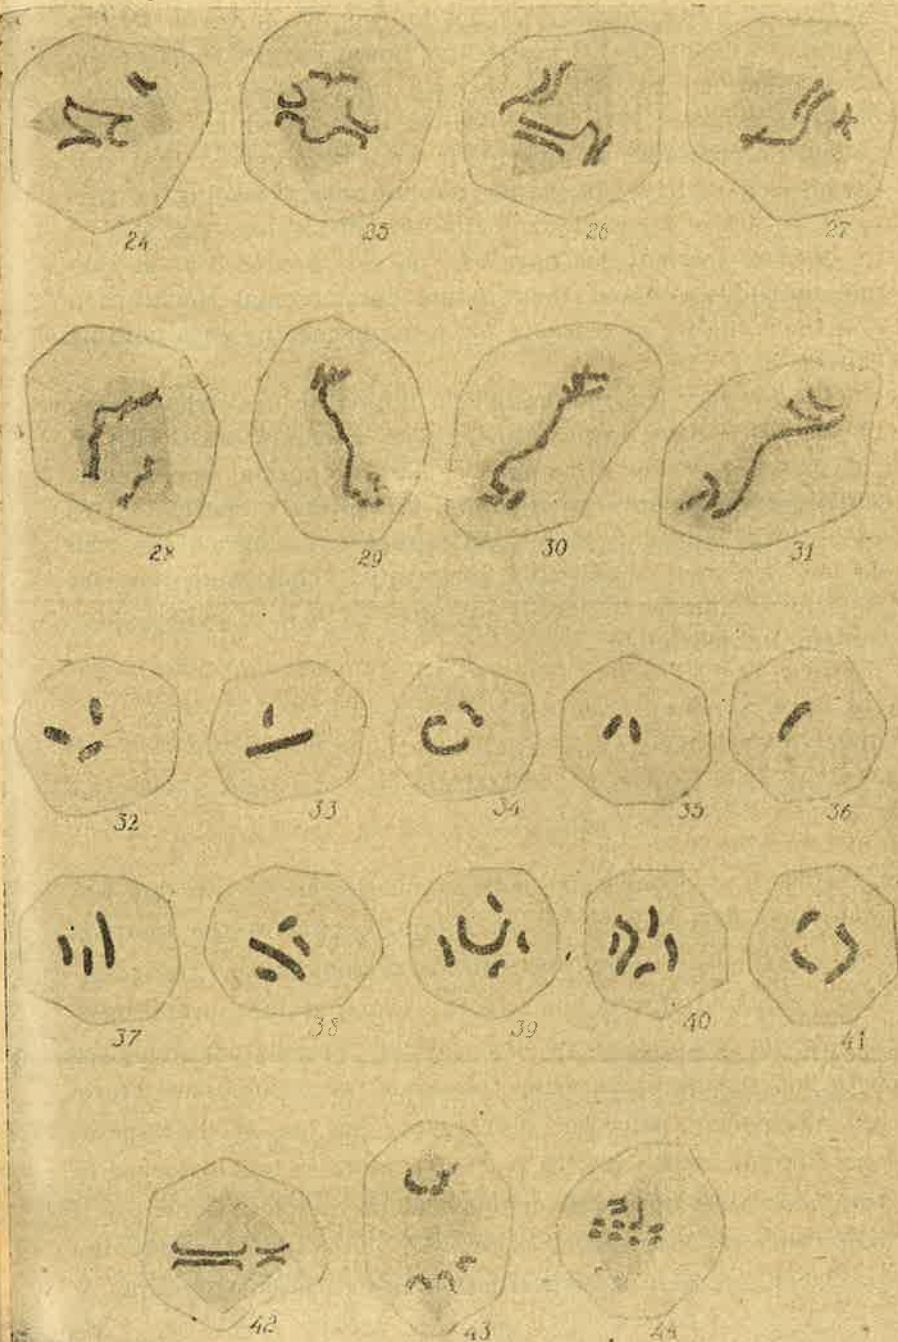 24 25 26 27
28 29 30 31
32 33 34 35 36
37 38 39 40 41
42 43 44